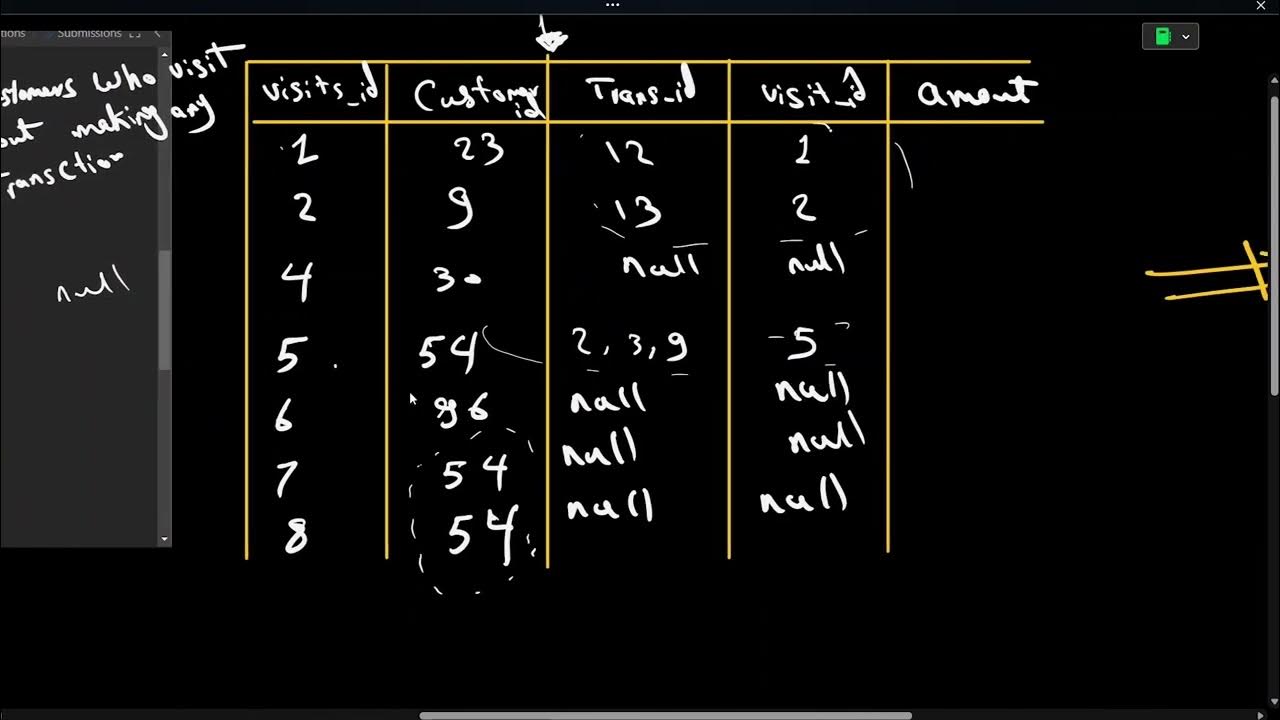 Submissions
visit
who
making any
null
visits_id Customer id Trans_id visit_id amount
1 23 12 1
2 9 13 2
4 30 null null
5 54 2, 3, 9 5
6 96 null null
7 54 null null
8 54 null null